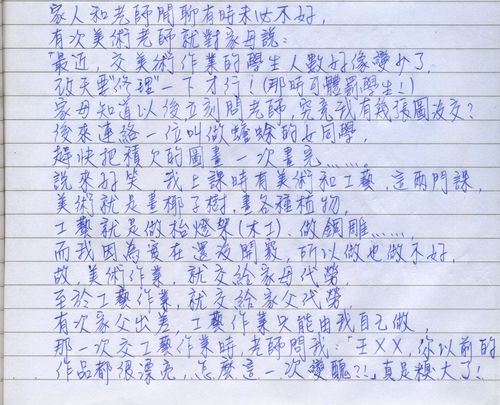 家人和老師閒聊有時未必不好，
有次美術老師就對家母說：
「最近，交美術作業的學生人數好像變少了，
改天要"修理"一下才行！(那時可體罰學生！)
家母知道以後立刻問老師，究竟我有幾張圖沒交？
後來連絡一位叫做蟾蜍的女同學，
趕快把積欠的圖畫一次畫完……。
說來好笑 我上課時有美術和工藝，這兩門課，
美術就是畫椰子樹，畫各種植物，
工藝就是做枱燈架(木工)、做銅雕……，
而我因為實在還沒開竅，所以做也做不好，
故，美術作業，就交給家母代勞，
至於工藝作業，就交給家父代勞，
有次家父出差，工藝作業只能由我自己做，
那一次交工藝作業時，老師問我：「王XX，你以前的
作品都很漂亮，怎麼這一次變醜?!」真是糗大了！